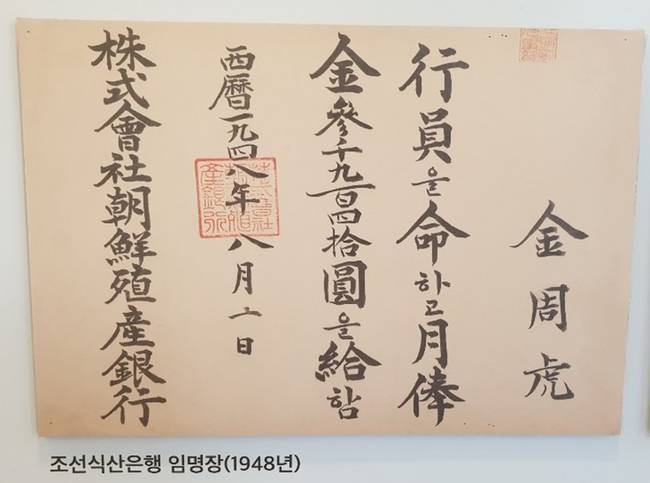 金周虎
行員을命하고月俸
金參千九百四拾圓을給함
西曆一九四八年八月 日
株式會社朝鮮殖産銀行
조선식산은행 임명장(1948년)